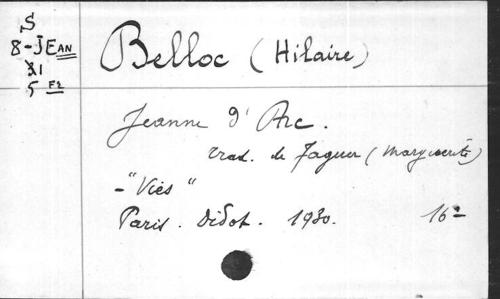 S
8-JEAN
31
5 F2
Belloc (Hilaire)
Jeanne d'Arc.
trad. de Faguer (Marguerite)
-"Vies"
Paris. Didot. 1930. 16-